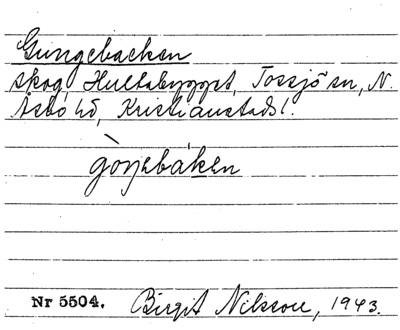 Gungebacken
skog, Hultabygget, Tossjö sn, N.
Åsbo hd, Kristianstads l.
gòŋebáken
Nr 5504. Birgit Nilsson, 1943.